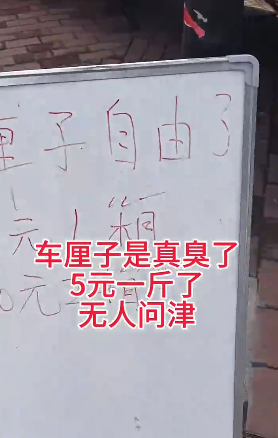 厘子自由了
元/箱
元
车厘子是真臭了
5元一斤了
无人问津